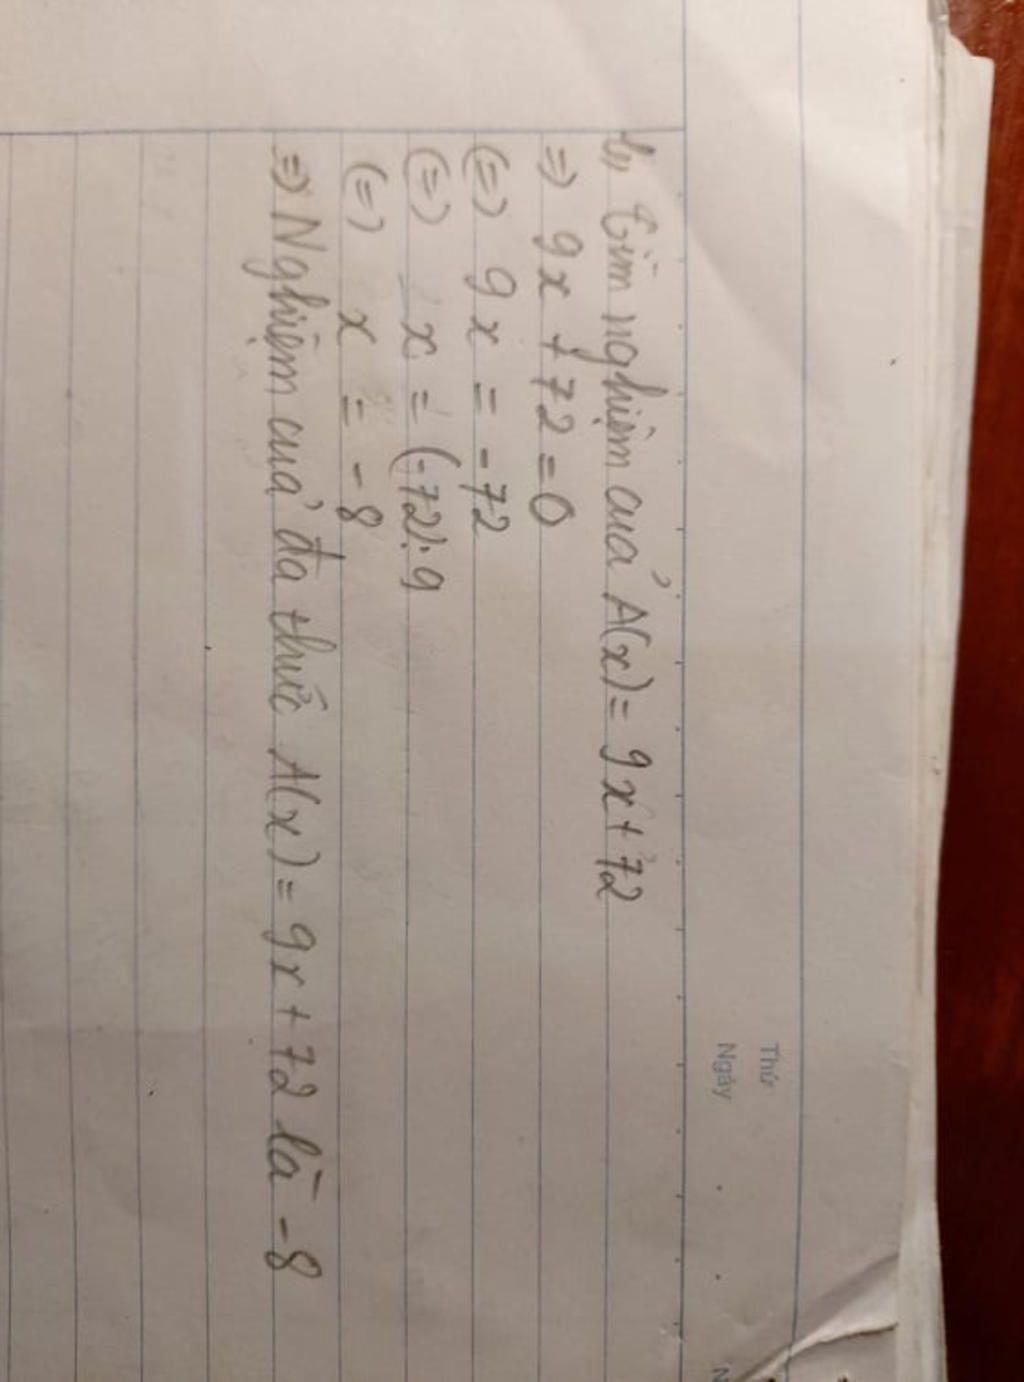 Thứ
Ngày
N
b, Tìm nghiệm của A(x) = 9x + 72
=> 9x + 72 = 0
(=) 9x = -72
(=) x = (-72) : 9
(=) x = -8
=> Nghiệm của đa thức A(x) = 9x + 72 là -8